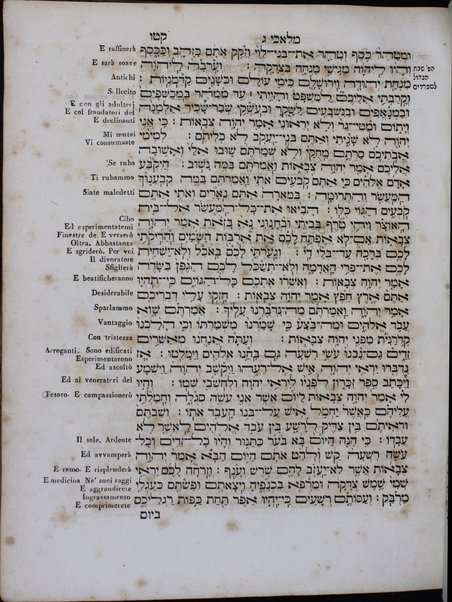 מלאכי ג קטו
ומטהר כסף וטהר את־בני־לוי וזקק אתם כזהב וככסף
והיו ליהוה מגישי מנחה בצדקה : וערבה ליהוה
מנחת יהודה וירושלם כימי עולם וכשנים קדמניות :
וקרבתי אליכם למשפט והייתי עד ממהר במכשפים
ובמנאפים ובנשבעים לשקר ובעשקי שכר־שכיר אלמנה
ויתום ומטי־גר ולא יראוני אמר יהוה צבאות : כי אני
יהוה לא שניתי ואתם בני־יעקב לא כליתם : למימי
אבתיכם סרתם מחקי ולא שמרתם שובו אלי ואשובה
אליכם אמר יהוה צבאות ואמרתם במה נשוב : היקבע
אדם אלהים כי אתם קבעים אתי ואמרתם במה קבענוך
המעשר והתרומה : במארה אתם נארים ואתי אתם
קבעים הגוי כלו : הביאו את־כל־המעשר אל־בית
האוצר ויהי טרף בביתי ובחנוני נא בזאת אמר יהוה
צבאות אם־לא אפתח לכם את ארבות השמים והריקתי
לכם ברכה עד־בלי־די : וגערתי לכם באכל ולא־ישחית
לכם את־פרי האדמה ולא־תשכל לכם הגפן בשדה
אמר יהוה צבאות : ואשרו אתכם כל־הגוים כי־תהיו
אתם ארץ חפץ אמר יהוה צבאות : חזקו עלי דבריכם
אמר יהוה ואמרתם מה־נדברנו עליך : אמרתם שוא
עבד אלהים ומה־בצע כי שמרנו משמרתו וכי הלכנו
קדרנית מפני יהוה צבאות : ועתה אנחנו מאשרים
זדים גם־נבנו עשי רשעה גם בחנו אלהים וימלטו : אז
נדברו יראי יהוה איש אל־רעהו ויקשב יהוה וישמע
ויכתב ספר זכרון לפניו ליראי יהוה ולחשבי שמו : והיו
לי אמר יהוה צבאות ליום אשר אני עשה סגלה וחמלתי
עליהם כאשר יחמל איש על־בנו העבד אתו : ושבתם
וראיתם בין צדיק לרשע בין עבד אלהים לאשר לא
עבדו : כי הנה היום בא בער כתנור והיו כל־זדים וכל
עשה רשעה קש ולהט אתם היום הבא אמר יהוה
צבאות אשר לא־יעזב להם שרש וענף : וזרחה לכם יראי
שמי שמש צדקה ומרפא בכנפיה ויצאתם ופשתם כעגלי
מרבק : ועסותם רשעים כי־יהיו אפר תחת כפות רגליכם
ביום
הפ' שבת
הגדול
לספרדים
E raffinerà
E sarà soave
Antichi
Sollecito
E con gli adulteri
E col fraudatori del
E declinanti
Mi mutai
Vi consumaste
Se ruba
Ti rubammo
Siate maledetti
Cibo
Ed esperimentatemi
Finestre de. E verserò
Oltra. Abbastanza
E sgriderò. Per voi
Il divoratore
Sfiglierà
E beatificheranno
Desiderabile
Sparlammo
Vantaggio
Con tristezza
Arroganti. Sono edificati
Esperimentarono
Ed ascoltò
Ed ai veneratori del
Tesoro. E compassionerò
Il sole. Ardente
Ed avvamperà
E ramo. E risplenderà
E medicina Ne' suoi raggi
E aggrandirete
Ingrassamento
E comprimerete